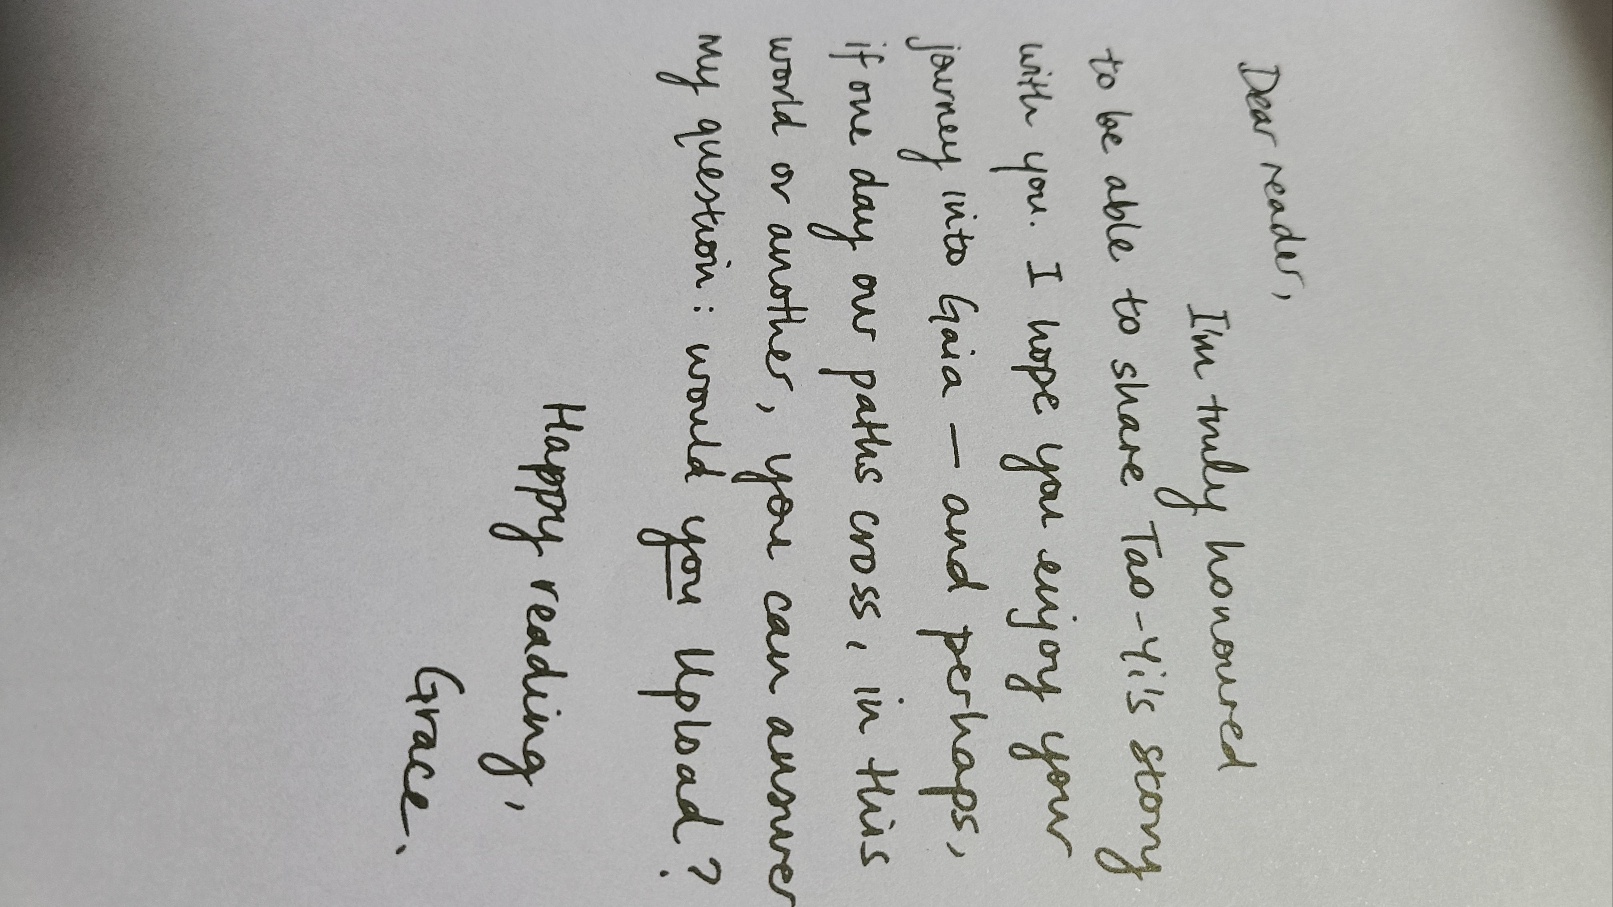 Dear reader,
I'm truly honoured
to be able to share Tao-Yi's story
with you. I hope you enjoy your
journey into Gaia — and perhaps,
if one day our paths cross, in this
world or another, you can answer
my question: would you Upload?
Happy reading,
Grace.